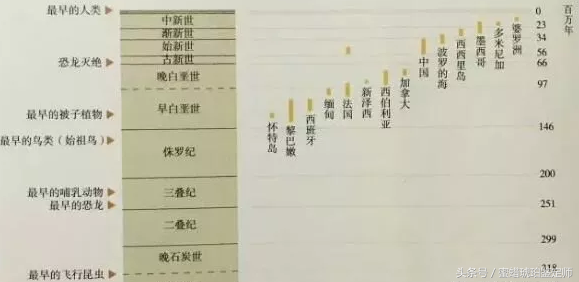 最早的人类
恐龙灭绝
最早的被子植物
最早的鸟类（始祖鸟）
最早的哺乳动物
最早的恐龙
最早的飞行昆虫
中新世
渐新世
始新世
古新世
晚白垩世
早白垩世
侏罗纪
三叠纪
二叠纪
晚石炭世
怀特岛
黎巴嫩
西班牙
缅甸
法国
新泽西
西伯利亚
加拿大
中国
波罗的海
西西里岛
墨西哥
多米尼加
婆罗洲
0
23
34
56
66
97
146
200
251
299
318
百万年
头条号